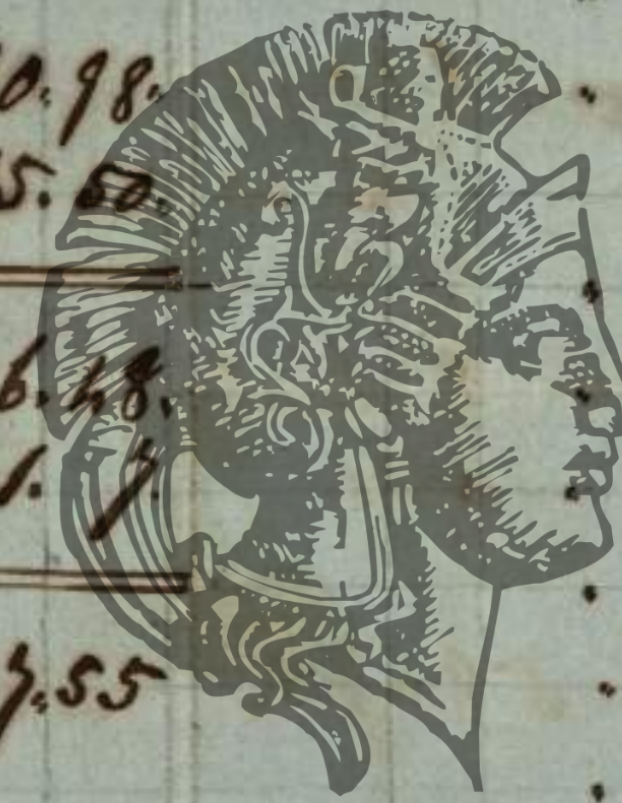 0.98.
5.50.
6.48.
1. 7.
7.55